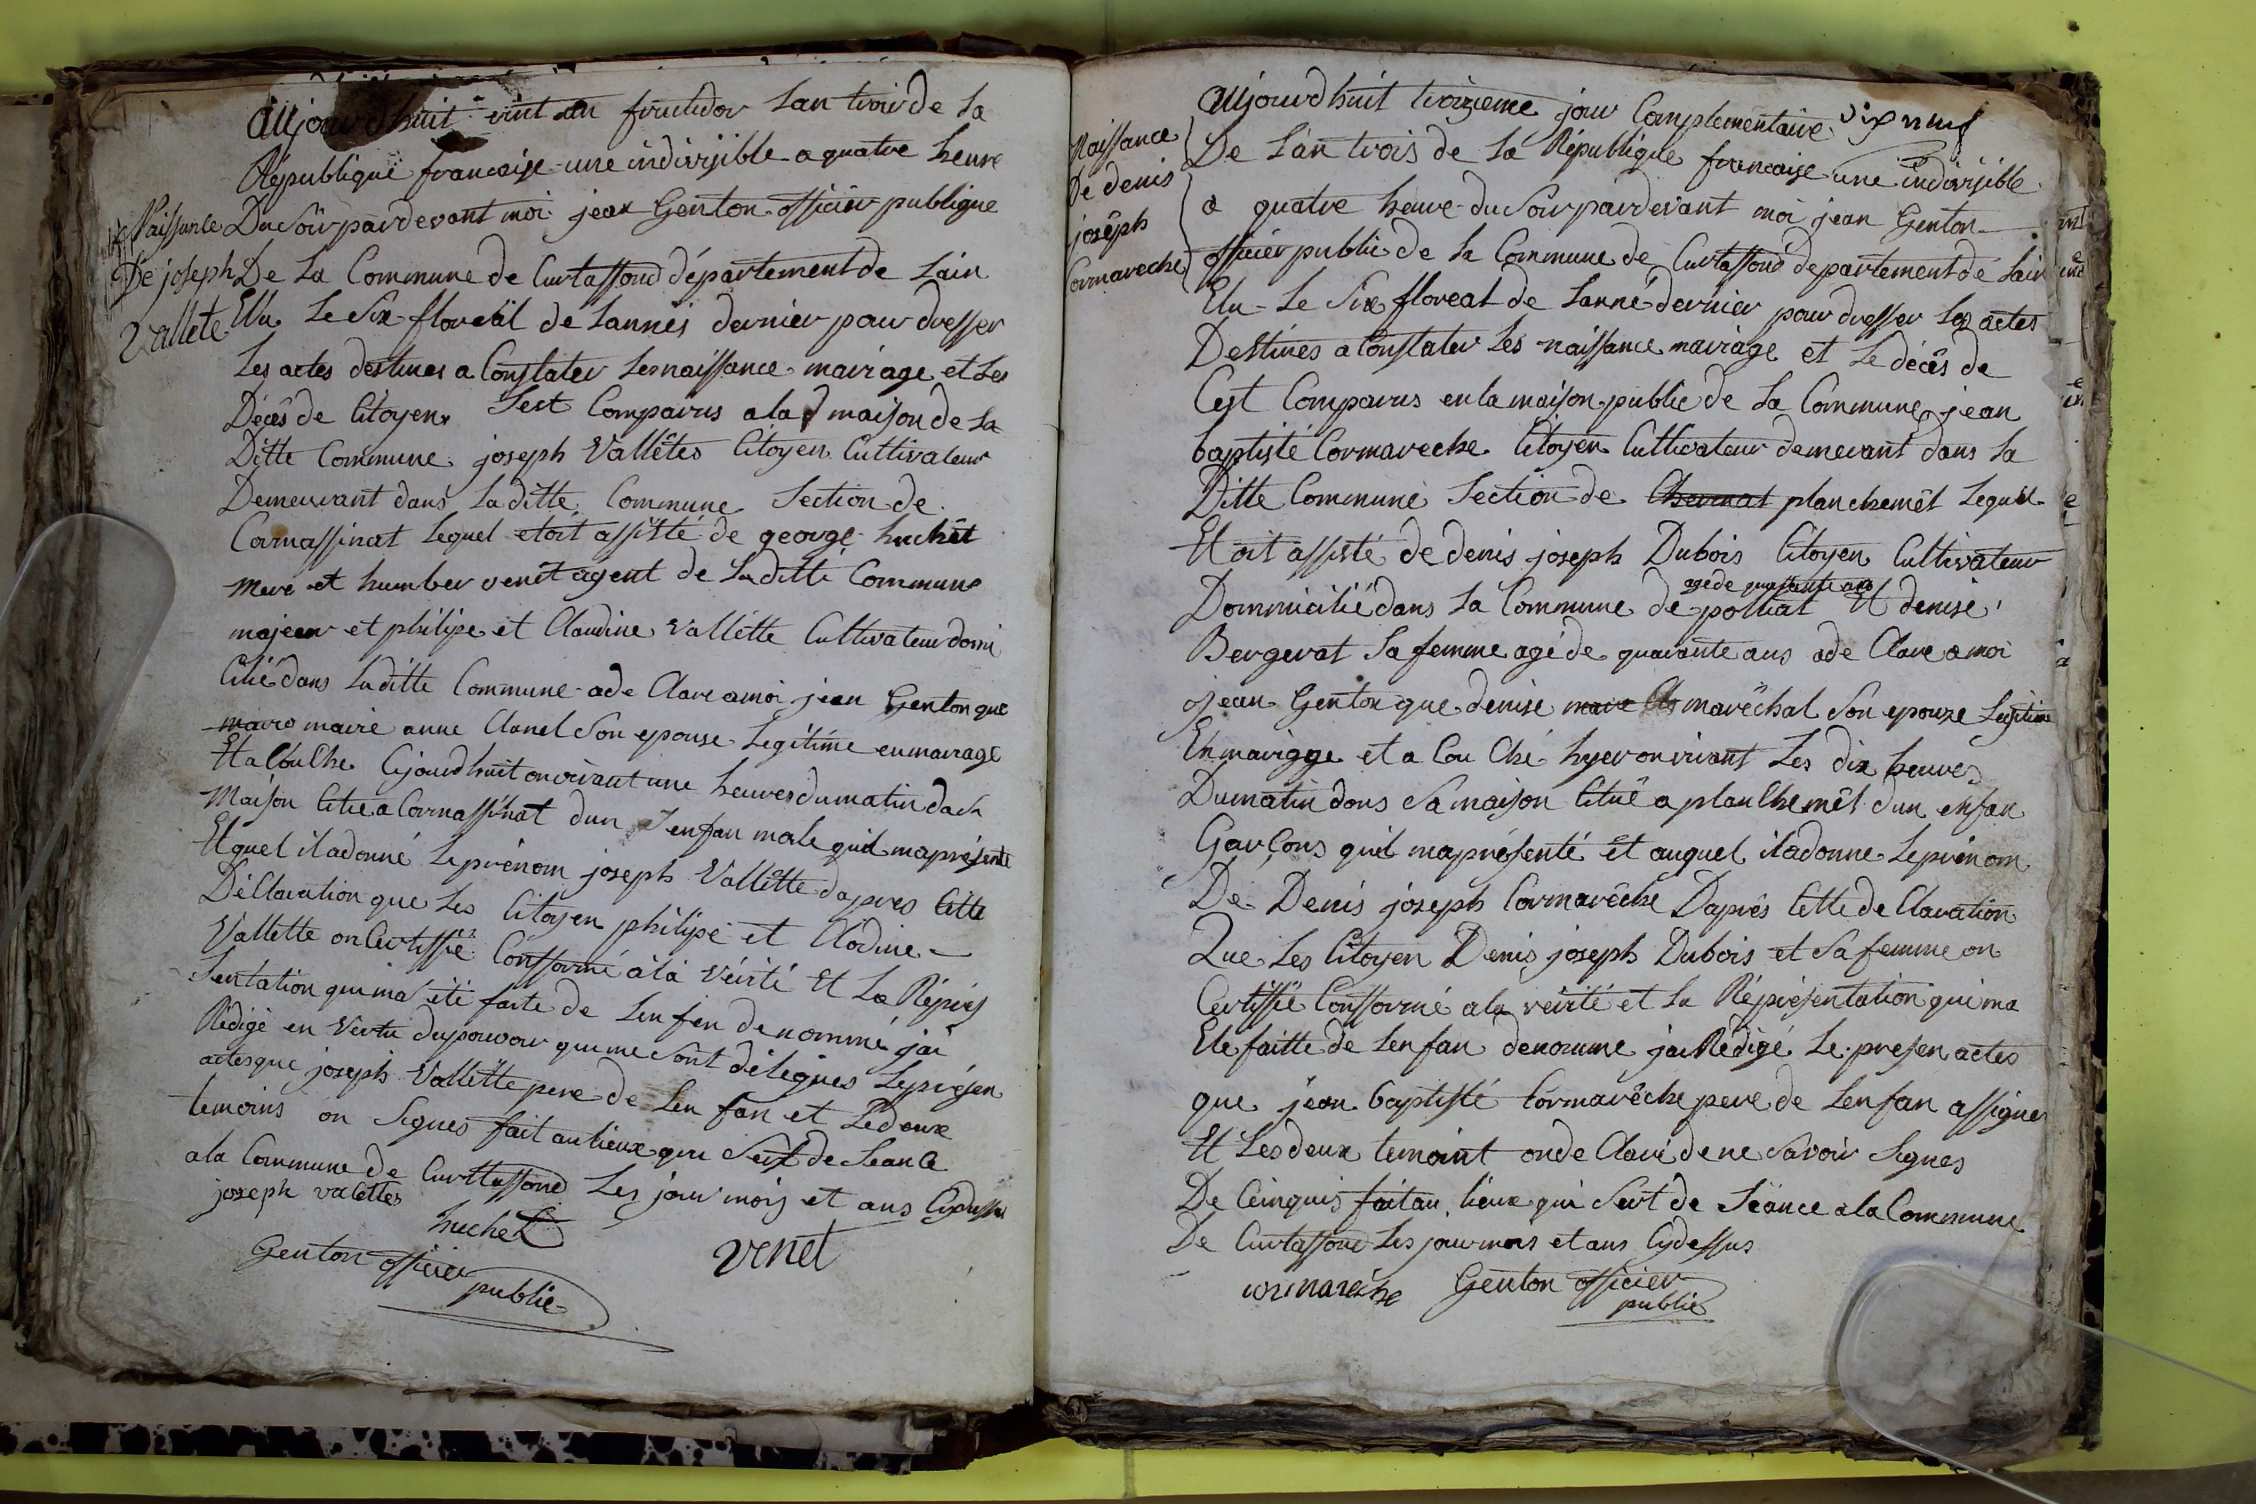 aujourdhuit vint un fructidor Lan trois de La
République francaise une indivisible a quatre heure
Du Soir pardevant moi jean Genton officier publique
De La Commune de Curtaffond département de Lain
Elu Le Six floreal de Lannés dernier pour dresser
Les actes destines a Constater Les naissance mairage et Les
Décês de Citoyen Sest Comparus a la maison de La
Ditte Commune joseph Vallêtes Citoyen Cultivateur
Demeurant dans Laditte Commune Section de
Cormassinat Lequel etoit assisté de george huchêt
mere et humber venet agent de Laditte Commune
majeur et philipe et Claudine Vallette Cultivateur domi
Cilié dans Laditte Commune a de Clare a moi jean Genton que
marie anne Clanel Son epouse Legitime en mairage
Et a Couche Cejourdhuit on vivant une heures du matin da Sa
Maison Citue a Cormassinat dun enfan male quil mapréjente
Et quel il a donné Le prénom joseph Vallêtte dapres Cette
Déclaration que Les Citoyen philipe et Clodine
Vallette on Certiffiē Confformé à la vérité Et La Répréj
Sentation qui ma êté faite de Lenfen denommé jai
Rédigé en Vertu du pouvoir qui me Sont délégues Le présen
actes que joseph Vallêtte pere de Len fan et Ledeux
temoins on Signes fait au lieux qui Sert de Seance
a la Commune de Curttaffond Les jour mois et ans Cydessus
joseph valettes
huchet
venet
Genton officier
publie
Naissance
De joseph
Vallete
Dix neuf
aujourdhuit troizieme jour Complementaire
De Lan trois de La République francaise une indivisible
a quatre heure du Soir pardevant moi jean Genton
officier public de La Commune de Curtaffond departement de Lain
Elu Le Six floreal de Lanné dernier pour dresser Les actes
Destinés a Constater Les naissance mairage et Le décês de
Cest Comparus en la maison public de La Commune jean
baptisté Cormareche Citoyen Cultivateur demeurant dans La
Ditte Commune Section de Charnat planchemêt Lequel
Et oit assisté de denis joseph Dubois Citoyen Cultivateur
agé de quarante ans
Dommicilié dans La Commune de polliat Et denise
Bergerat Sa femme agé de quarante ans a de Clare a moi
jean Genton que denise marêchal Son epouze Legitime
En marigge et a Cou Ché hyer on vivant Les dix heures
Du matin dons Sa maison Cituê a planchemêt dun enfan
Garcons quil maprésenté Et auquel il adonne Le prénom
De Denis joseph Cormarêche Daprês Cette de Claration
Que Les Citoyen Denis joseph Dubois et Sa femme on
Certiffiē Confformé a la véirité et La Réprésentation qui ma
Ete faitte de Lenfan denomme jai Rédigé Le presen actes
que jean baptisté Cormarêche pere de Lenfan assignes
Et Les deux temoint on de Claré de ne Savoir Signes
De Ceinquis fait au lieux qui Sert de Séance a la Commune
De Curtaffond Les jour mois et ans Cydessus
cormareche
Genton officier
public
Naissance
De denis
joséph
Cormareche